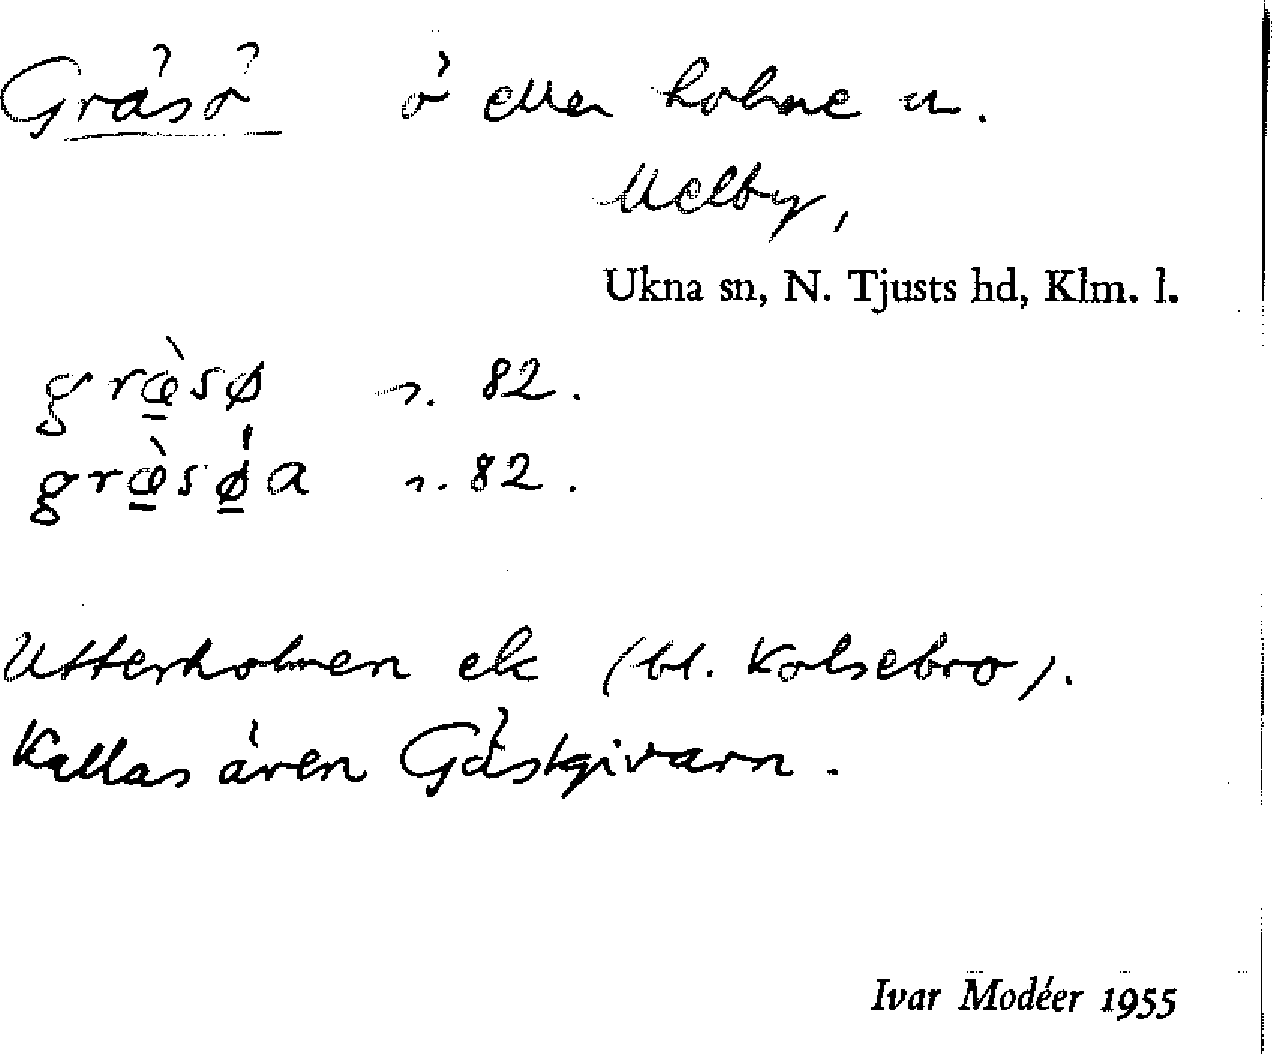 Gräsö ö eller holme u.
Melby,
Ukna sn, N. Tjusts hd, Klm. l.
græ̀sø s. 82.
græ̀sǿa s. 82.
Utterholmen ek (bl. Kolsebro).
Kallas även Gästgivarn.
Ivar Modéer 1955